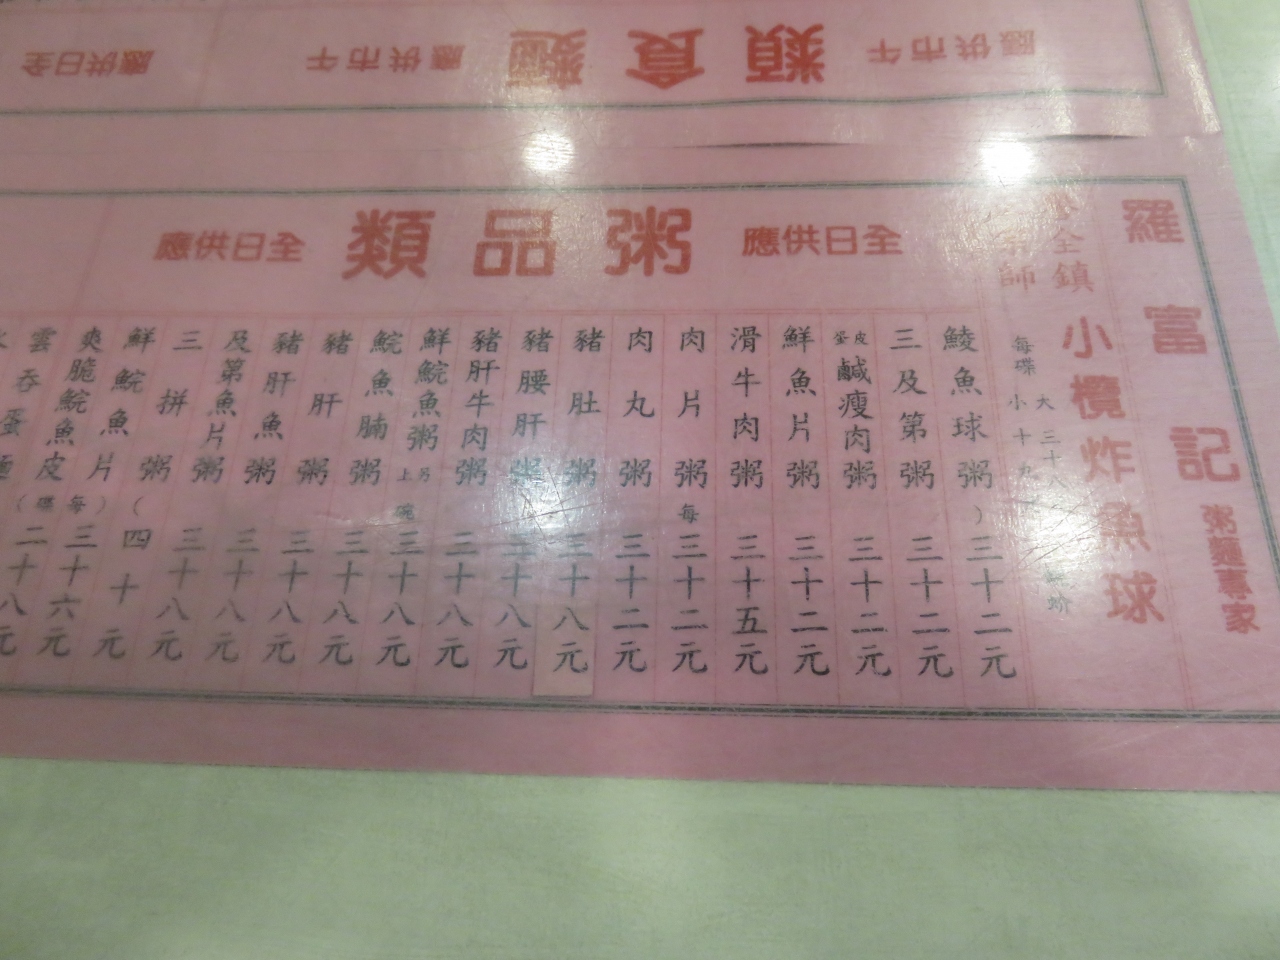 羅富記
粥麵專家
小欖炸魚球
每碟
全日供應
粥品類
全日供應
鯪魚球粥
三十二元
三及第粥
三十二元
皮蛋鹹瘦肉粥
三十二元
鮮魚片粥
三十二元
滑牛肉粥
三十五元
肉片粥
三十二元
肉丸粥
三十二元
豬肚粥
三十八元
豬腰肝粥
三十八元
豬肝牛肉粥
三十八元
鮮鯇魚粥
三十八元
鯇魚腩粥
三十八元
豬肝粥
三十八元
豬肝魚粥
三十八元
及第魚片粥
三十八元
三拼粥
三十八元
鮮鯇魚片
四十元
爽脆鯇魚皮
三十六元
(每碟)
二十八元
午市供應
麵食類
午市供應
全日供應